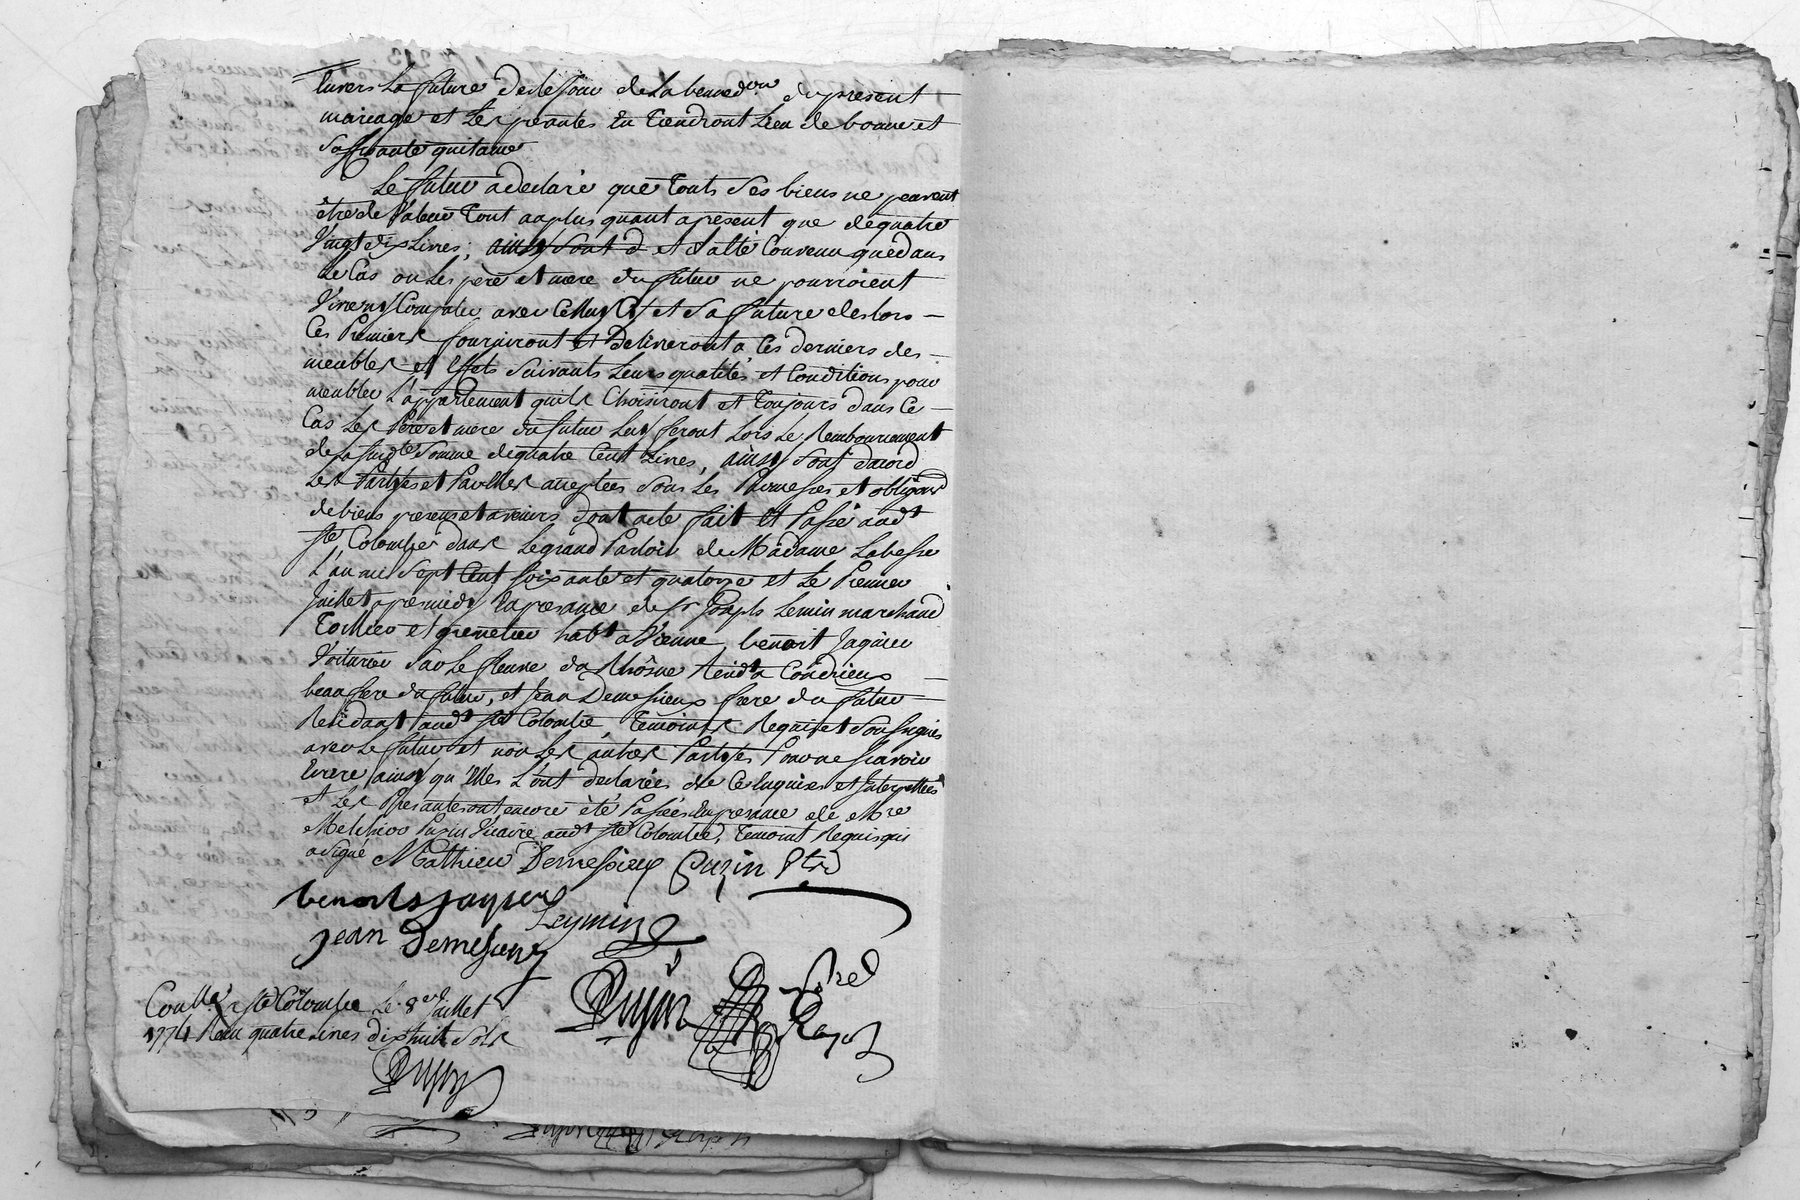 Envers la future des le jour de la benedon du present
mariage et les presantes en Tiendront Lieu de bonne et
Suffisante quitance
Le futur a declaré que touts ses biens ne peuvent
être de Valeur tout au plus quant a present que de quatre
Vingt dix Livres; ainsy sont d et a été Convenu que dans
Le Cas ou les pere et mere du futur ne pourroient
Vivre Compatir avec Celluy Cy et Sa future des lors
Ces Premiers fourniront et Delivreront a Ces derniers des
meubles et Effets Suivants Leurs qualités et Conditions pour
meubler L'appartement quils Choisiront et Toujours dans Ce
Cas Les Pere et mere du futur Leur feront Lors Le Remboursement
de La susdte Somme de quatre Cent Livres, ainsy Sont dacord
Les Partyes et Par Elles acceptées Sous Les Promesses et obligaon
de biens presens et avenirs dont acte fait et Passé audt
Ste Colombe dans Le grand Parloir de Madame Labesse
L'an mil Sept Cent soixante et quatorze et le Premier
Juillet apres midy En presance de sr Joseph Lemin marchand
Toillier et grenetier habt a Vienne, benoit Jaquier
Voiturier Sur Le fleuve du Rhône Residt a Condrieux
beau frere du futur, et Jean Demessieux frere du futur
Residant audt Ste Colombe, Temoins Requis et Soussignés
avec Le futur et non Les autres Partyes Pour ne scavoir
Ecrire ainsy qu'Elles L'ont declarées de Ce Enquises et Interpellées
et Les Presantes ont encore été Passées En presance de Mre
Melchior Puzin Vicaire audt Ste Colombe, Temoint Requis qui
a signé Mathieu Demessieux Puzin Ptre
benoit jaquier
Leymin
jean Demessieux
Coullé a Ste Colombe Le 8e Juillet
1774 Reçu quatre Livres dix huit Sols